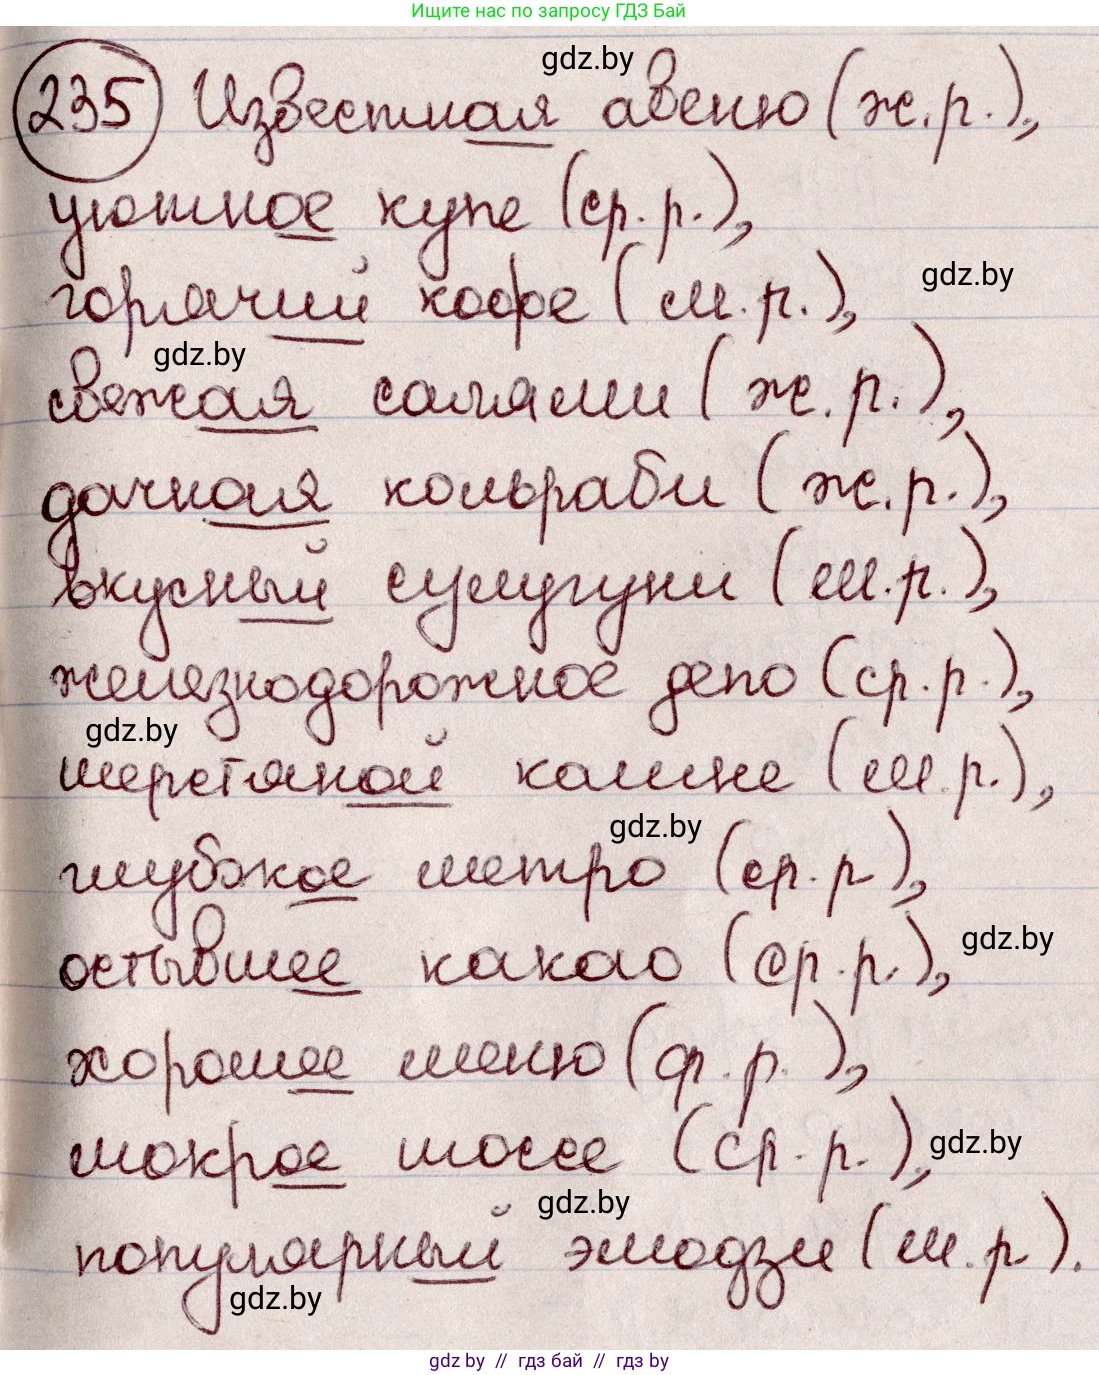 Ищите нас по запросу ГДЗ Бай
gdz.by
235 Известная авеню (ж.р.),
уютное купе (ср.р.),
gdz.by
горячий кофе (м.р.),
gdz.by
свежая салями (ж.р.),
дачная кольраби (ж.р.),
вкусный сулугуни (м.р.),
железнодорожное депо (ср.р.),
gdz.by
шерстяной кашне (м.р.),
gdz.by
глубокое метро (ср.р),
gdz.by
остывшее какао (ср.р.),
хорошее меню (ср.р.),
мокрое шоссе (ср.р.),
gdz.by
gdz.by
популярный эмодзи (м.р).
gdz.by
gdz.by // гдз бай // гдз by